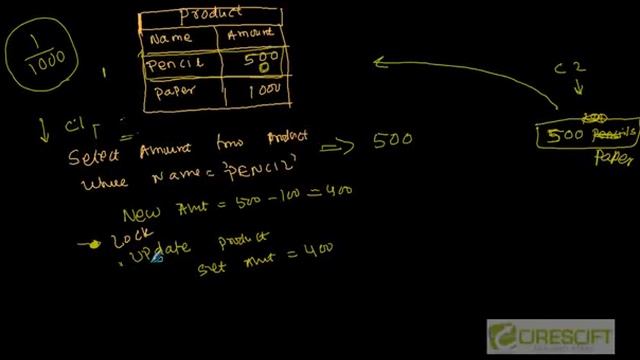 1
1000
Product
Name Amount
Pencil 500
0
Paper 1000
C1
Select Amount from Product
Where Name = 'PENCIL'
=> 500
New Amt = 500 - 100 = 400
Lock
Update product
Set Amt = 400
C2
500 pencils
Paper
CIRESCIFT